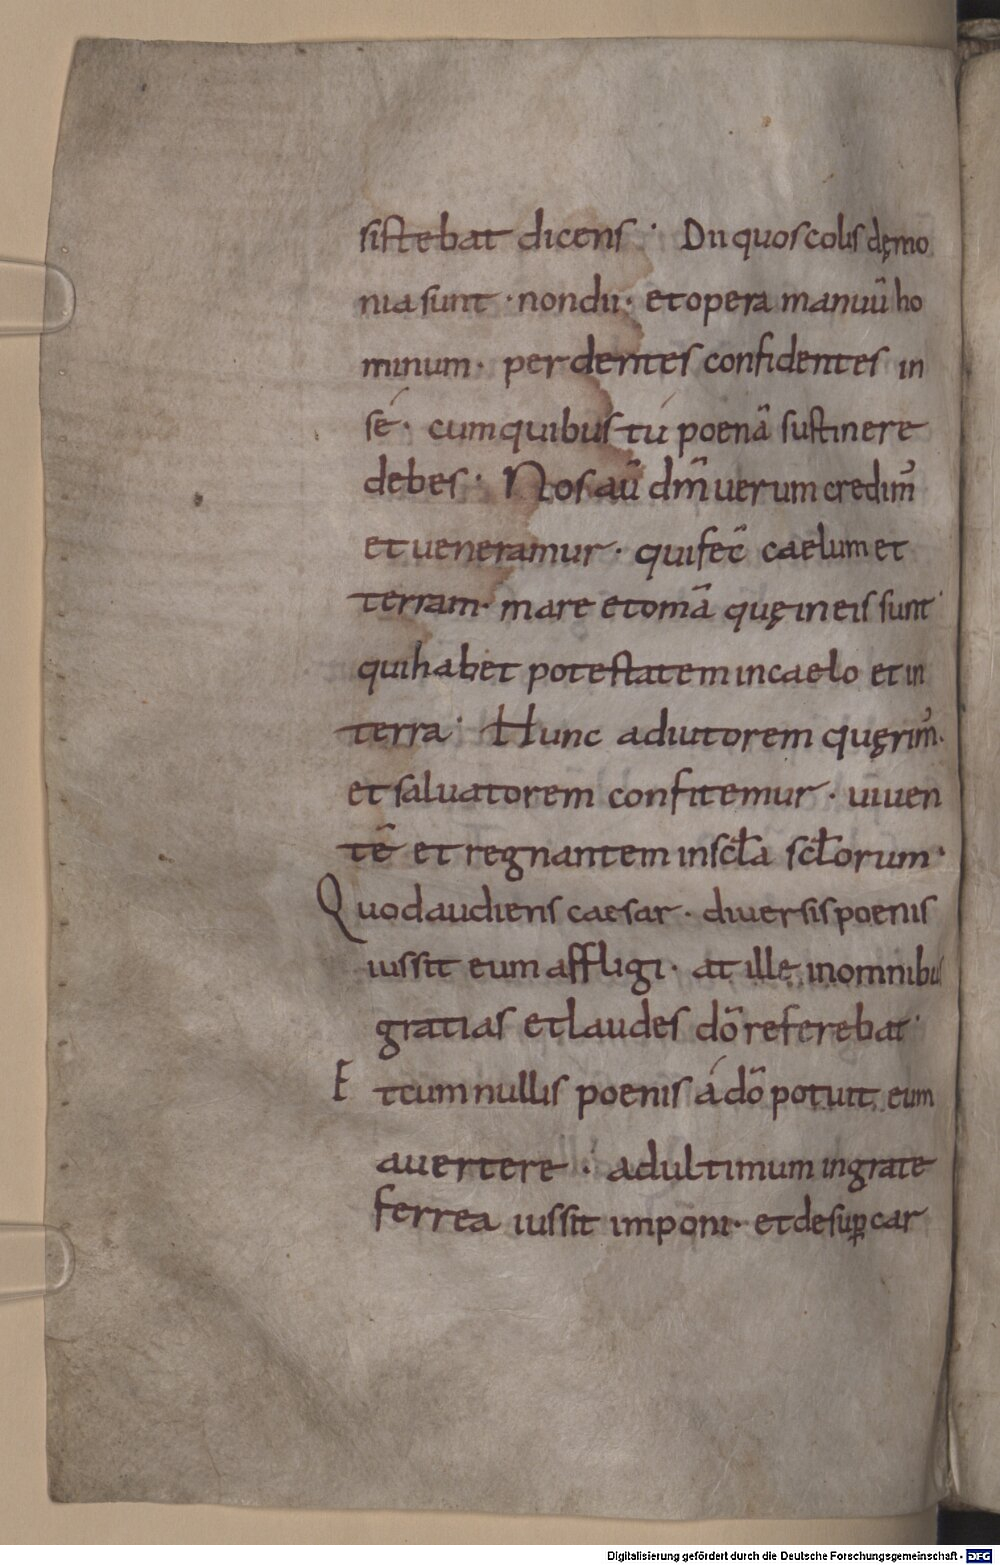 sistebat dicens · Dii quos colis dęmo
nia sunt · non dii · et opera manuū ho
minum · perdentes confidentes in
sé · cum quibus tú poenā sustinere
debes · Nos aū dm̄ uerum credim᾿
et ueneramur · qui fec̄ caelum et
terram · mare et omā quę in eis sunt ·
qui habet potestatem in caelo et in
terra · Hunc adiutorem quęrim᾿ ·
et saluatorem confitemur · uiuen
tē et regnantem in scła scłorum ·
Quod audiens caesar · diuersis poenis
iussit eum affligi · at ille in omnibus
gratias et laudes dō referebat ·
Et cum nullis poenis á dō potuit eum
auertere · ad ultimum in grate
ferrea iussit imponi · et desuꝑ car
Digitalisierung gefördert durch die Deutsche Forschungsgemeinschaft - DFG